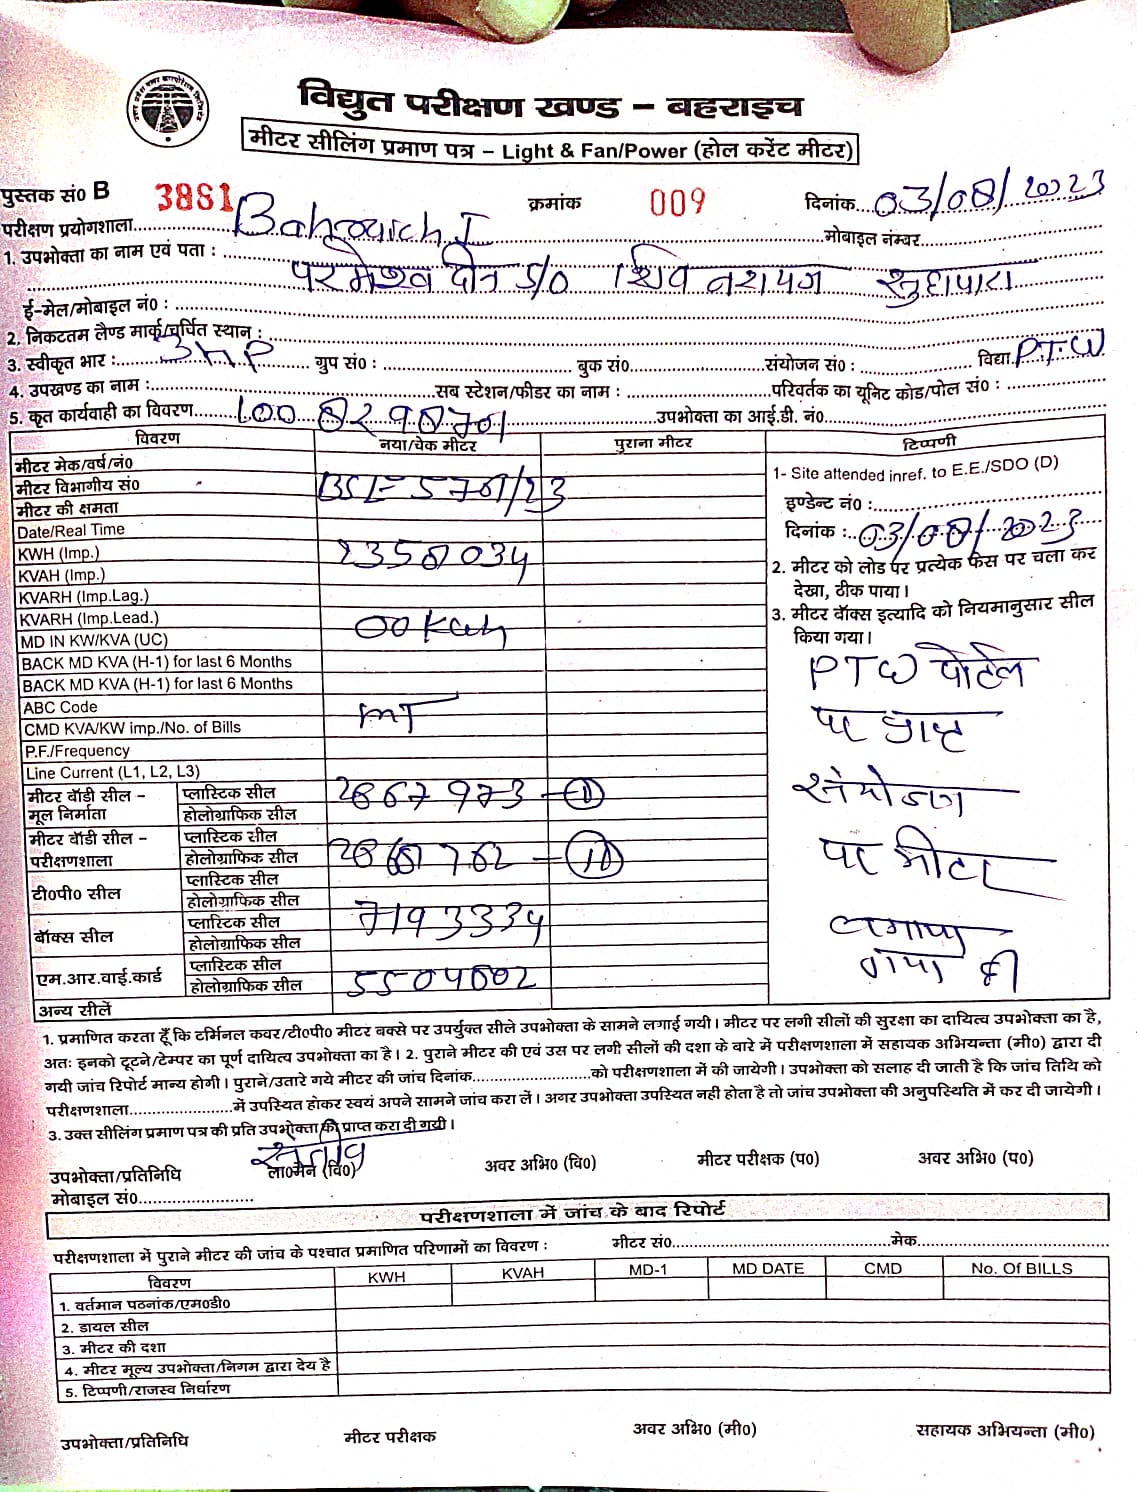 विद्युत परीक्षण खण्ड – बहराइच
मीटर सीलिंग प्रमाण पत्र – Light & Fan/Power (होल करेंट मीटर)
पुस्तक सं० B 3881 क्रमांक 009 दिनांक 03/08/2023
परीक्षण प्रयोगशाला Bahraich I मोबाइल नम्बर
1. उपभोक्ता का नाम एवं पता :
S/O शिव
ई-मेल/मोबाइल नं० :
2. निकटतम लैण्ड मार्क/चर्चित स्थान :
3. स्वीकृत भार : 3HP ग्रुप सं० : बुक सं० संयोजन सं० : विद्या P.T.W
4. उपखण्ड का नाम : सब स्टेशन/फीडर का नाम : परिवर्तक का यूनिट कोड/पोल सं० :
5. कृत कार्यवाही का विवरण उपभोक्ता का आई.डी. नं०
विवरण नया/चेक मीटर पुराना मीटर टिप्पणी
मीटर मेक/वर्ष/नं०
मीटर विभागीय सं०
मीटर की क्षमता
Date/Real Time
KWH (Imp.)
KVAH (Imp.)
KVARH (Imp.Lag.)
KVARH (Imp.Lead.)
MD IN KW/KVA (UC)
BACK MD KVA (H-1) for last 6 Months
BACK MD KVA (H-1) for last 6 Months
ABC Code
CMD KVA/KW imp./No. of Bills MT
P.F./Frequency
Line Current (L1, L2, L3)
1- Site attended inref. to E.E./SDO (D)
इण्डेन्ट नं० :
दिनांक : 03/08/2023
2. मीटर को लोड पर प्रत्येक फेस पर चला कर
देखा, ठीक पाया।
3. मीटर बॉक्स इत्यादि को नियमानुसार सील
किया गया।
PTW पोर्टल
पर प्राप्त
संयोजन
पर मीटर
लगाया
गया है
मीटर बॉडी सील – प्लास्टिक सील 2867973
मूल निर्माता होलोग्राफिक सील
मीटर बॉडी सील – प्लास्टिक सील
परीक्षणशाला होलोग्राफिक सील
टी०पी० सील प्लास्टिक सील
होलोग्राफिक सील
बॉक्स सील प्लास्टिक सील 7193334
होलोग्राफिक सील
एम.आर.वाई.कार्ड प्लास्टिक सील
होलोग्राफिक सील
अन्य सीलें
1. प्रमाणित करता हूँ कि टर्मिनल कवर/टी०पी० मीटर बक्से पर उपर्युक्त सीले उपभोक्ता के सामने लगाई गयी। मीटर पर लगी सीलों की सुरक्षा का दायित्व उपभोक्ता का है,
अतः इनको टूटने/टेम्पर का पूर्ण दायित्व उपभोक्ता का है। 2. पुराने मीटर की एवं उस पर लगी सीलों की दशा के बारे में परीक्षणशाला में सहायक अभियन्ता (मी०) द्वारा दी
गयी जांच रिपोर्ट मान्य होगी। पुराने/उतारे गये मीटर की जांच दिनांक को परीक्षणशाला में की जायेगी। उपभोक्ता को सलाह दी जाती है कि जांच तिथि को
परीक्षणशाला में उपस्थित होकर स्वयं अपने सामने जांच करा लें। अगर उपभोक्ता उपस्थित नही होता है तो जांच उपभोक्ता की अनुपस्थिति में कर दी जायेगी।
3. उक्त सीलिंग प्रमाण पत्र की प्रति उपभोक्ता को प्राप्त करा दी गयी।
उपभोक्ता/प्रतिनिधि ला०मैन (वि०) अवर अभि० (वि०) मीटर परीक्षक (प०) अवर अभि० (प०)
मोबाइल सं०
परीक्षणशाला में जांच के बाद रिपोर्ट
परीक्षणशाला में पुराने मीटर की जांच के पश्चात प्रमाणित परिणामों का विवरण : मीटर सं० मेक
विवरण KWH KVAH MD-1 MD DATE CMD No. Of BILLS
1. वर्तमान पठनांक/एम०डी०
2. डायल सील
3. मीटर की दशा
4. मीटर मूल्य उपभोक्ता/निगम द्वारा देय है
5. टिप्पणी/राजस्व निर्धारण
उपभोक्ता/प्रतिनिधि मीटर परीक्षक अवर अभि० (मी०) सहायक अभियन्ता (मी०)